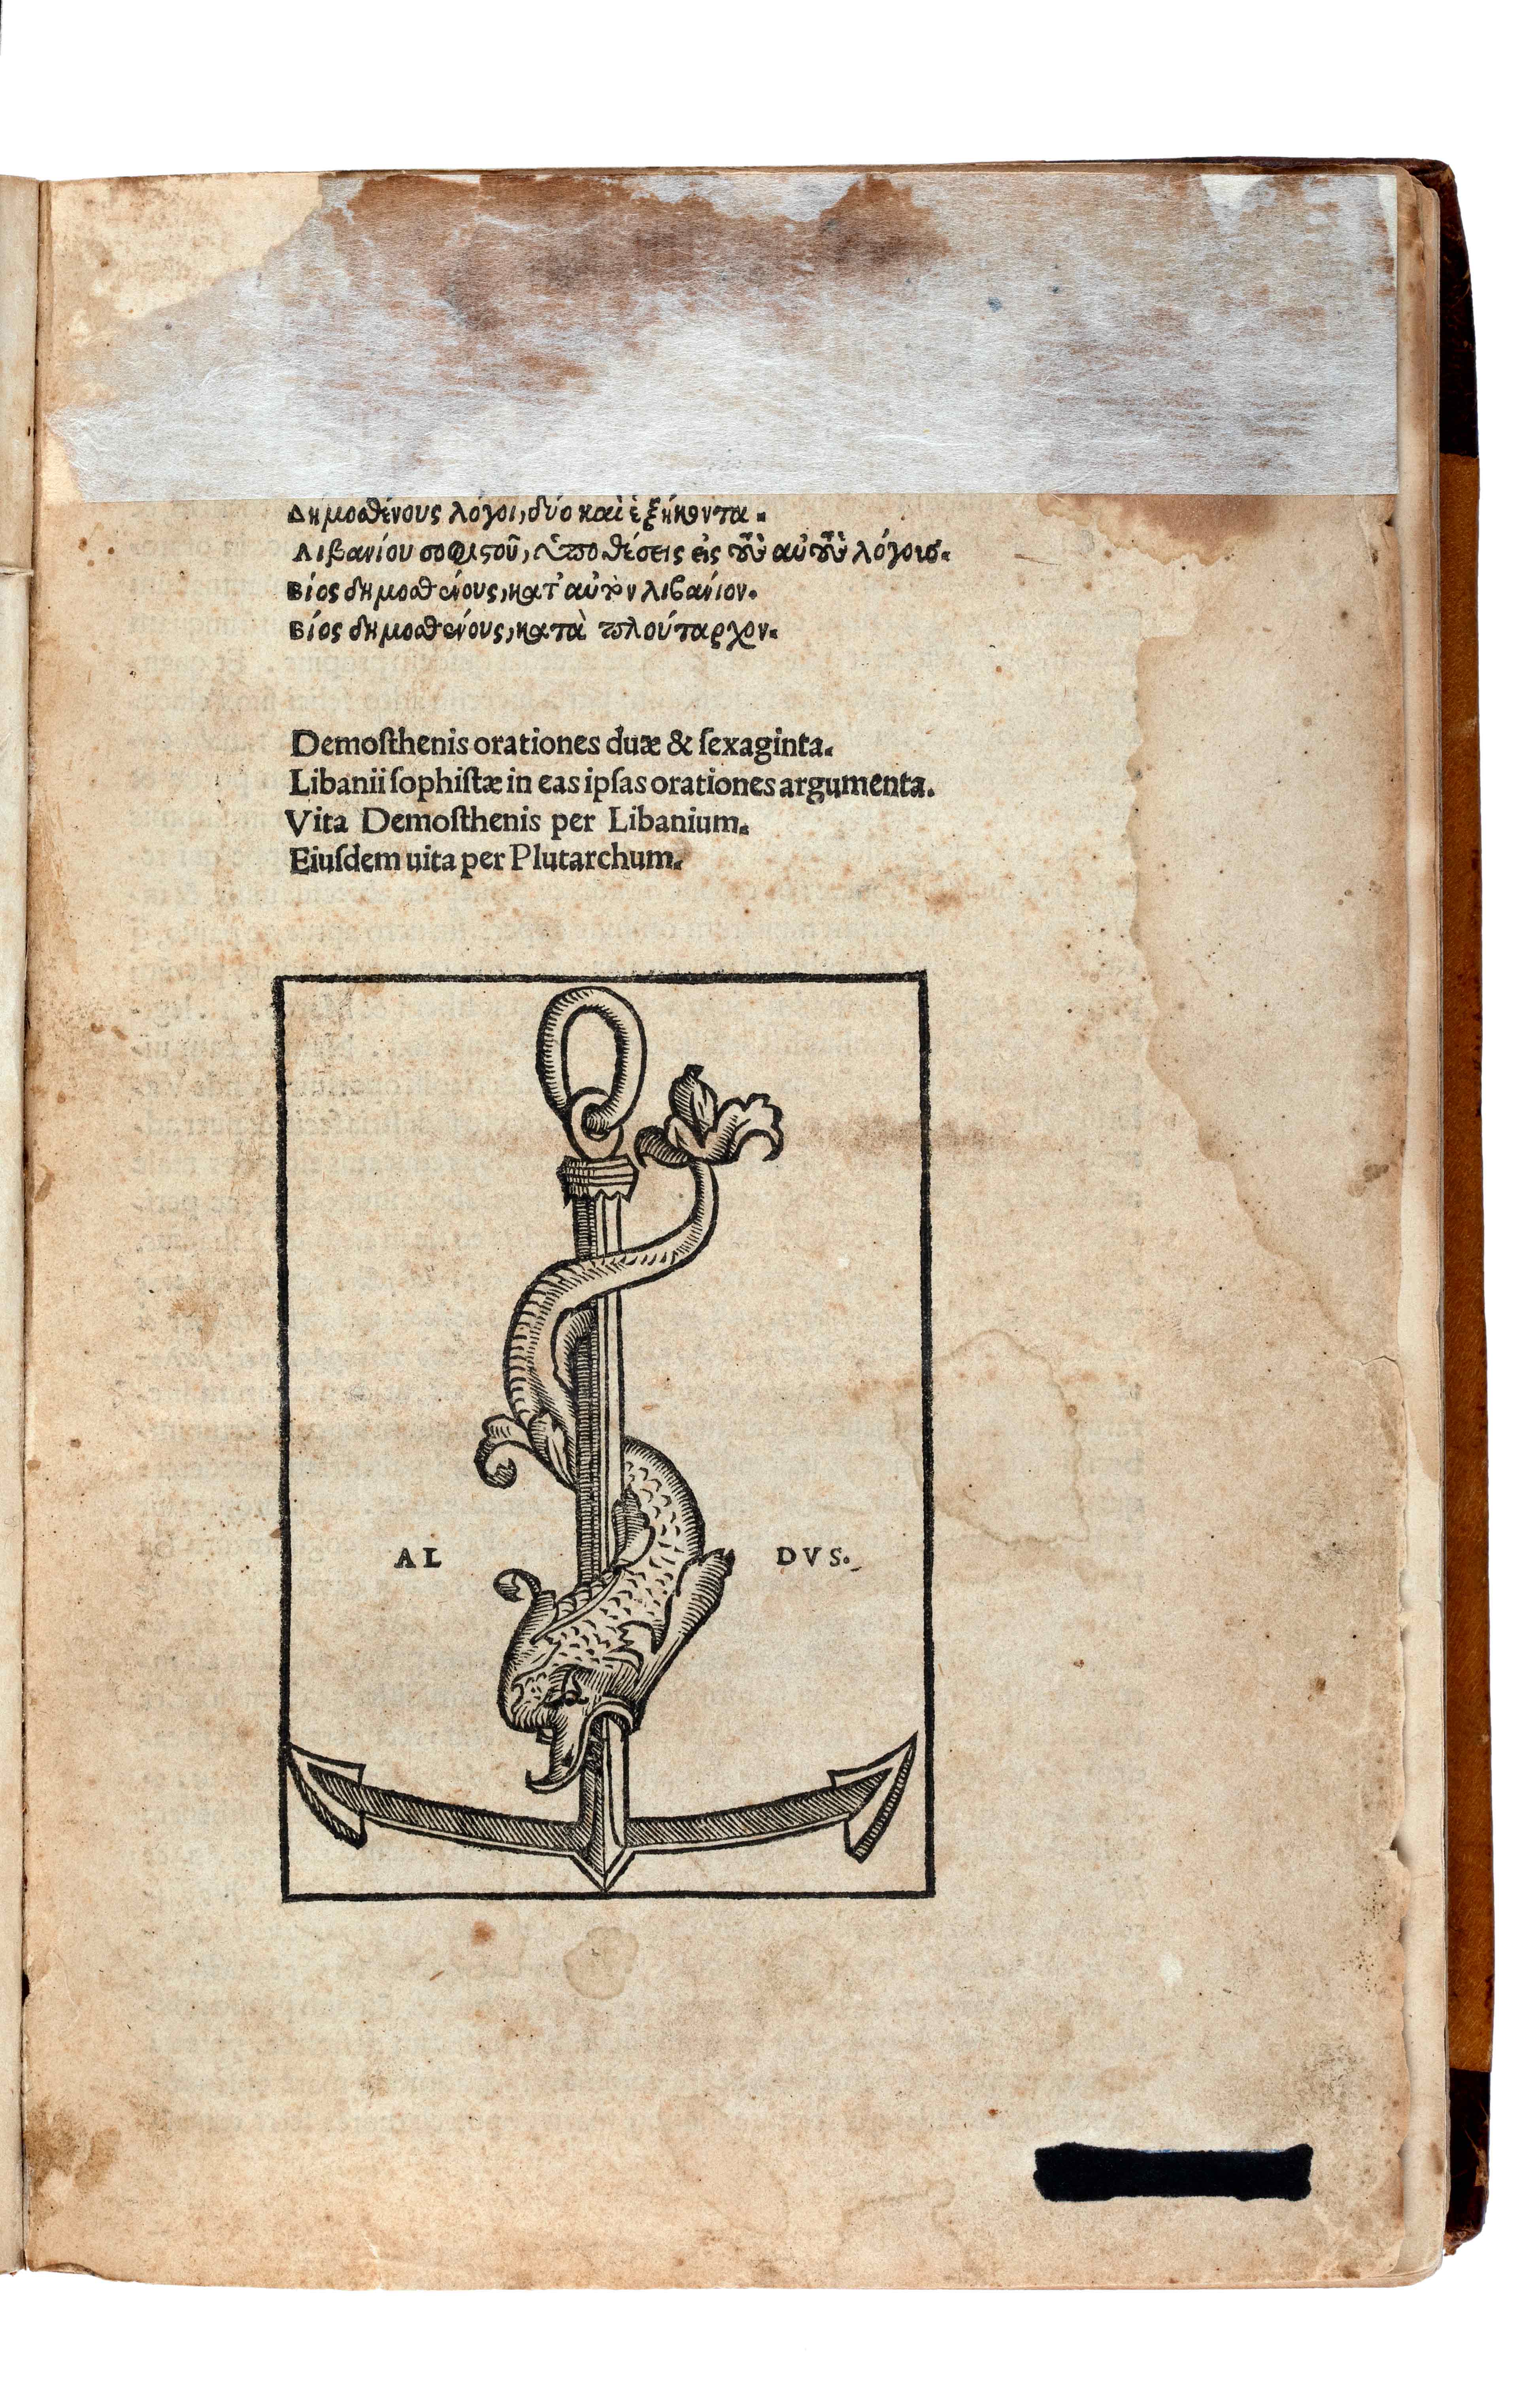 Δημοσθένους λόγοι, δύο καὶ ἑξήκοντα.
Λιβανίου σοφιστοῦ, ὑποθέσεις εἰς τοὺς αὐτοὺς λόγους.
Βίος δημοσθένους, κατ' αὐτὸν λιβάνιον.
Βίος δημοσθένους, κατὰ πλούταρχον.
Demoſthenis orationes duæ & ſexaginta.
Libanii ſophiſtæ in eas ipſas orationes argumenta.
Vita Demoſthenis per Libanium.
Eiuſdem uita per Plutarchum.
AL DVS.